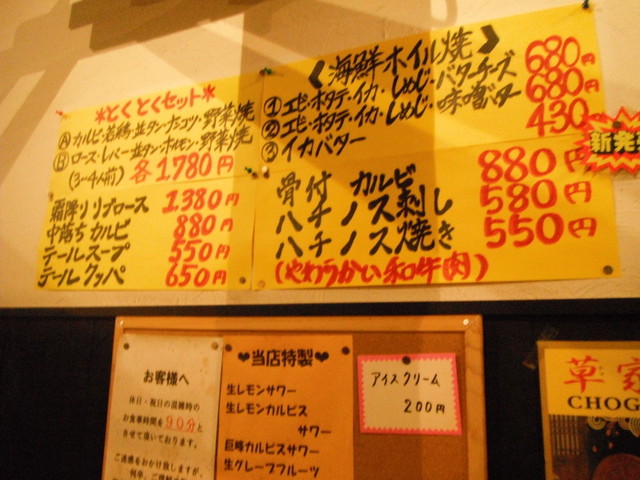 *とくとくセット*
Ⓐカルビ・若鶏・並タン・ナンコツ・野菜焼
Ⓑロース・レバー・並タン・ホルモン・野菜焼
(3〜4人前) 各1780円
霜降りリブロース 1380円
中落ちカルビ 880円
テールスープ 550円
テールクッパ 650円
《海鮮ホイル焼》
①エビ・ホタテ・イカ・しめじ・バターチーズ 680円
②エビ・ホタテ・イカ・しめじ・味噌バター 680円
③イカバター 430
骨付カルビ 880円
ハチノス刺し 580円
ハチノス焼き 550円
(やわらかい和牛肉)
新発
お客様へ
休日・祝日の混雑時の
お食事時間を90分と
させて頂いております。
ご迷惑をおかけ致しますが、
♥当店特製♥
生レモンサワー
生レモンカルピス
サワー
巨峰カルピスサワー
生グレープフルーツ
アイスクリーム
200円
草家
CHOG